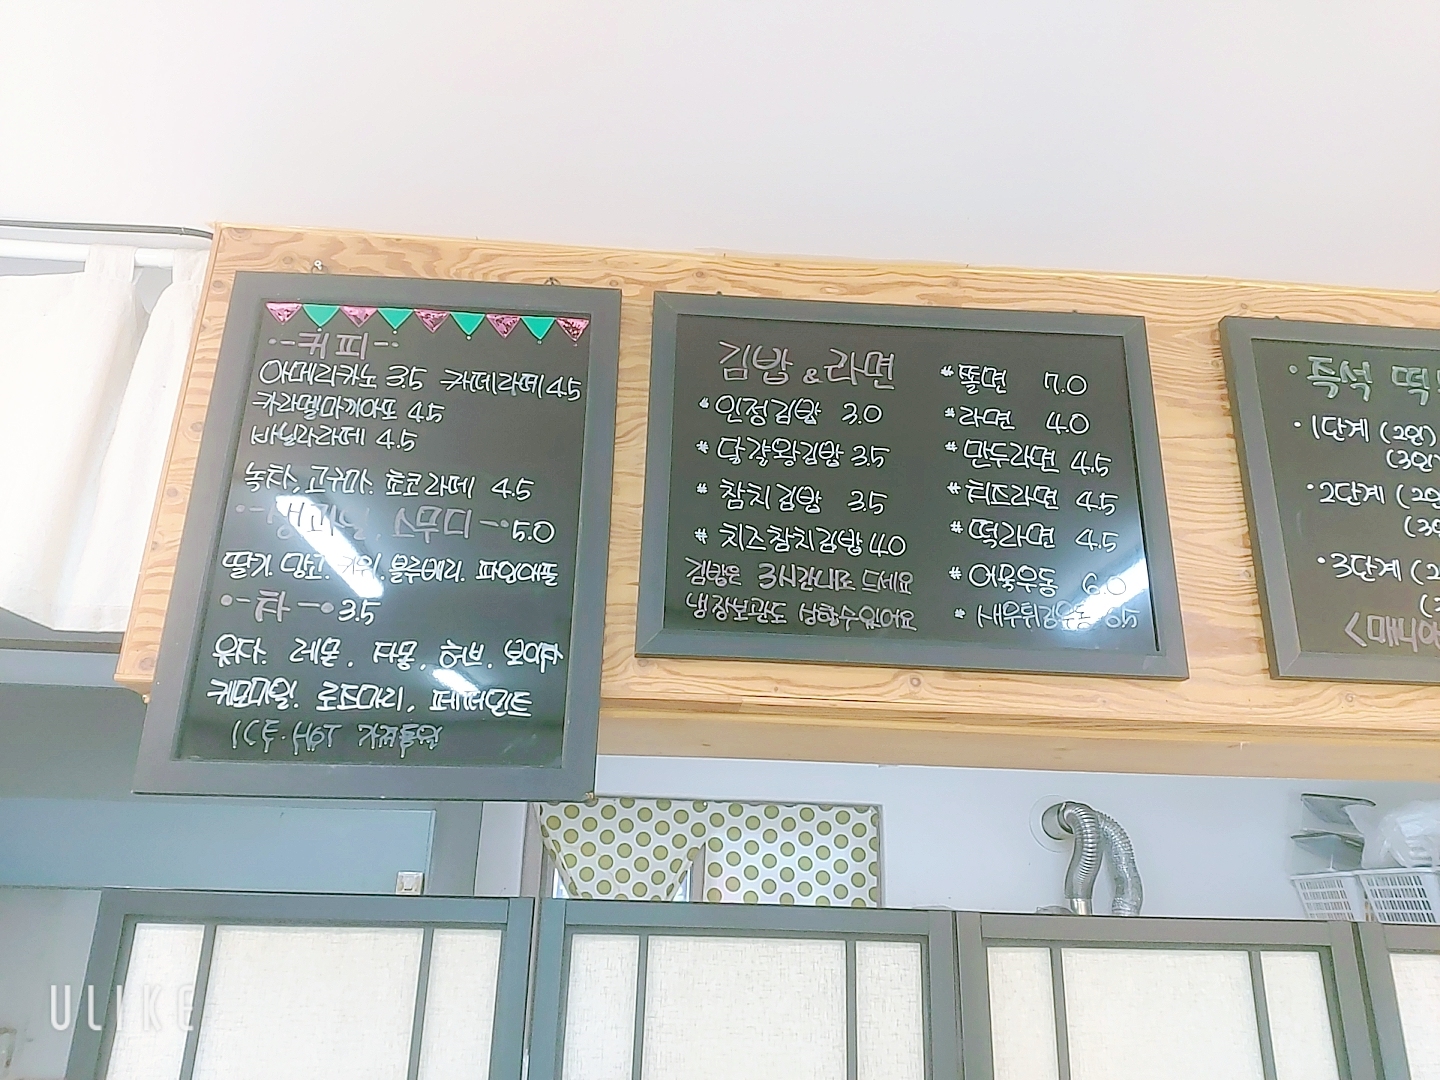 커피
아메리카노 3.5 카페라떼 4.5
카라멜마끼아또 4.5
바닐라라떼 4.5
녹차, 고구마. 쵸코라떼 4.5
스무디 5.0
딸기. 망고. 키위. 블루베리. 파인애플
차 3.5
유자. 레몬. 자몽. 허브. 보이차
케모마일. 로즈마리, 페퍼민트
ICE. HOT 가격동일
김밥 & 라면
* 인정김밥 3.0
* 달걀왕김밥 3.5
* 참치김밥 3.5
* 치즈참치김밥 4.0
김밥은 3시간내로 드세요
냉장보관도 상할수있어요
* 쫄면 7.0
* 라면 4.0
* 만두라면 4.5
* 치즈라면 4.5
* 떡라면 4.5
* 어묵우동 6.0
* 새우튀김우동 6.5
· 즉석 떡
· 1단계 (2인)
(3인
· 2단계 (2인
(3인
· 3단계 (2
(3
<매니아
ULIKE